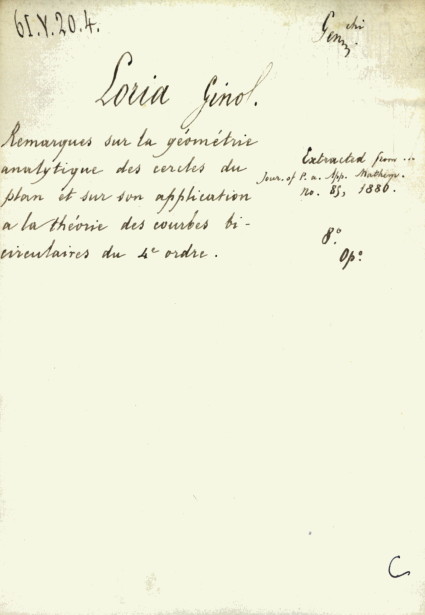 61.V.20.4.
Genochi
Loria Ginol.
Remarques sur la géométrie
analytique des cercles du
plan et sur son application
a la théorie des courbes bi-
circulaires du 4e ordre.
Extracted from ...
Jour. of P. a. App. Mathem.
no. 85, 1886.
8°
Op.
C